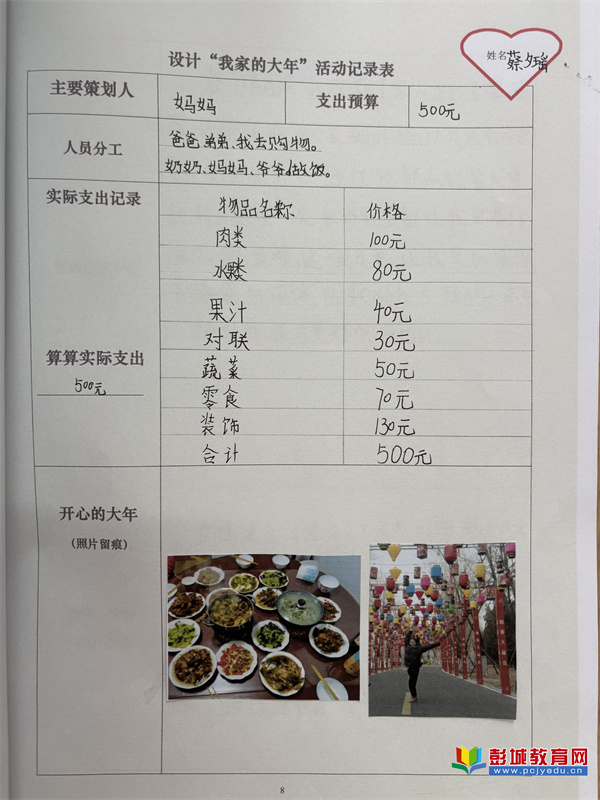 姓名 蔡夕瑶
设计“我家的大年”活动记录表
主要策划人 妈妈 支出预算 500元
人员分工 爸爸、弟弟、我去购物。
奶奶、妈妈、爷爷做饭。
实际支出记录 物品名称 价格
肉类 100元
80元
果汁 40元
对联 30元
算算实际支出 蔬菜 50元
500元 零食 70元
装饰 130元
合计 500元
开心的大年
(照片留痕)
彭城教育网
www.pcjyedu.cn
8